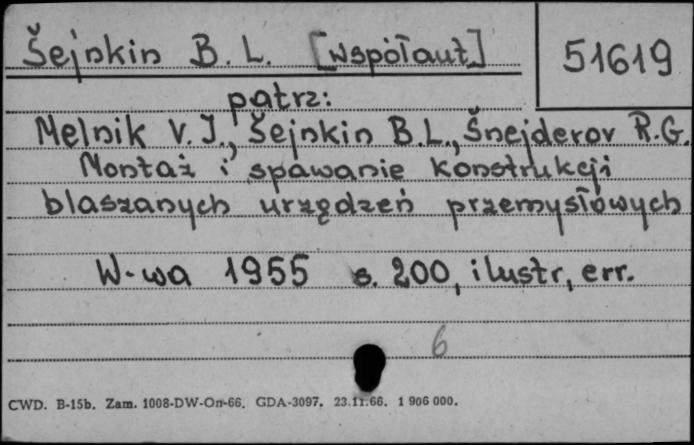 Šejnkin B. L. [współaut]
51619
patrz:
Melnik V. J., Šejnkin B.L., Šnejderov R.G.
Montaż i spawanie konstrukcji
blaszanych urządzeń przemysłowych
W-wa 1955 s. 200, ilustr, err.
6
CWD. B-15b. Zam. 1008-DW-On-66. GDA-3097. 23.11.66. 1 906 000.